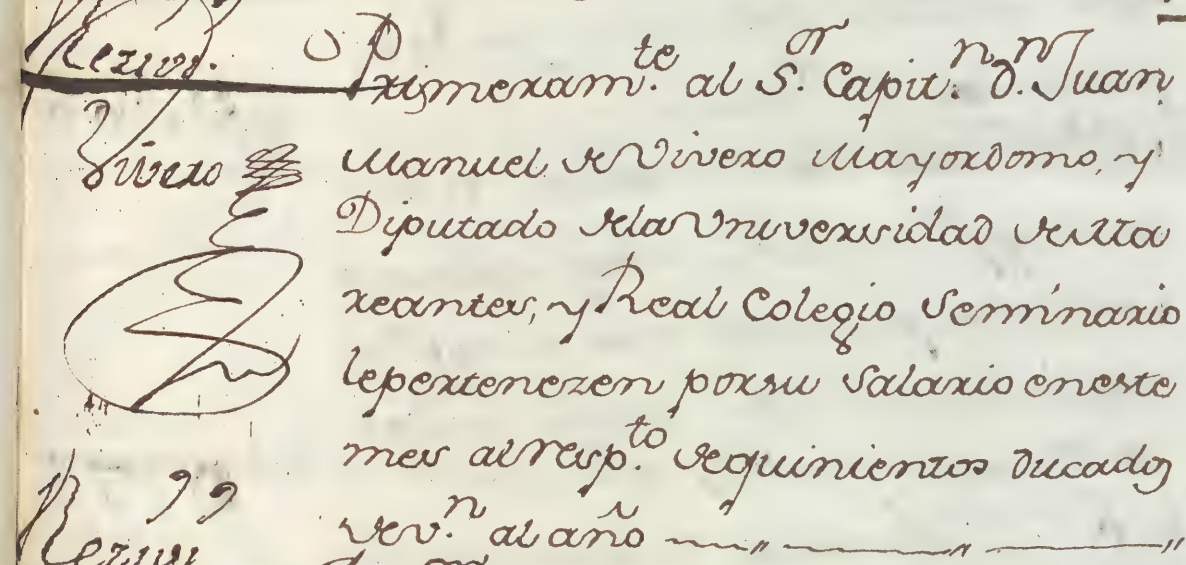 Rezivi.
Vivero
Primeram.te al S.or Capit.n D.n Juan
Manuel de Vivero Mayordomo, y
Diputado dela Universidad de Ma
reantes, y Real Colegio Seminario
lepertenezen porsu Salario eneste
mes al resp.to dequinientos ducados
dev.n al año
Rezivi